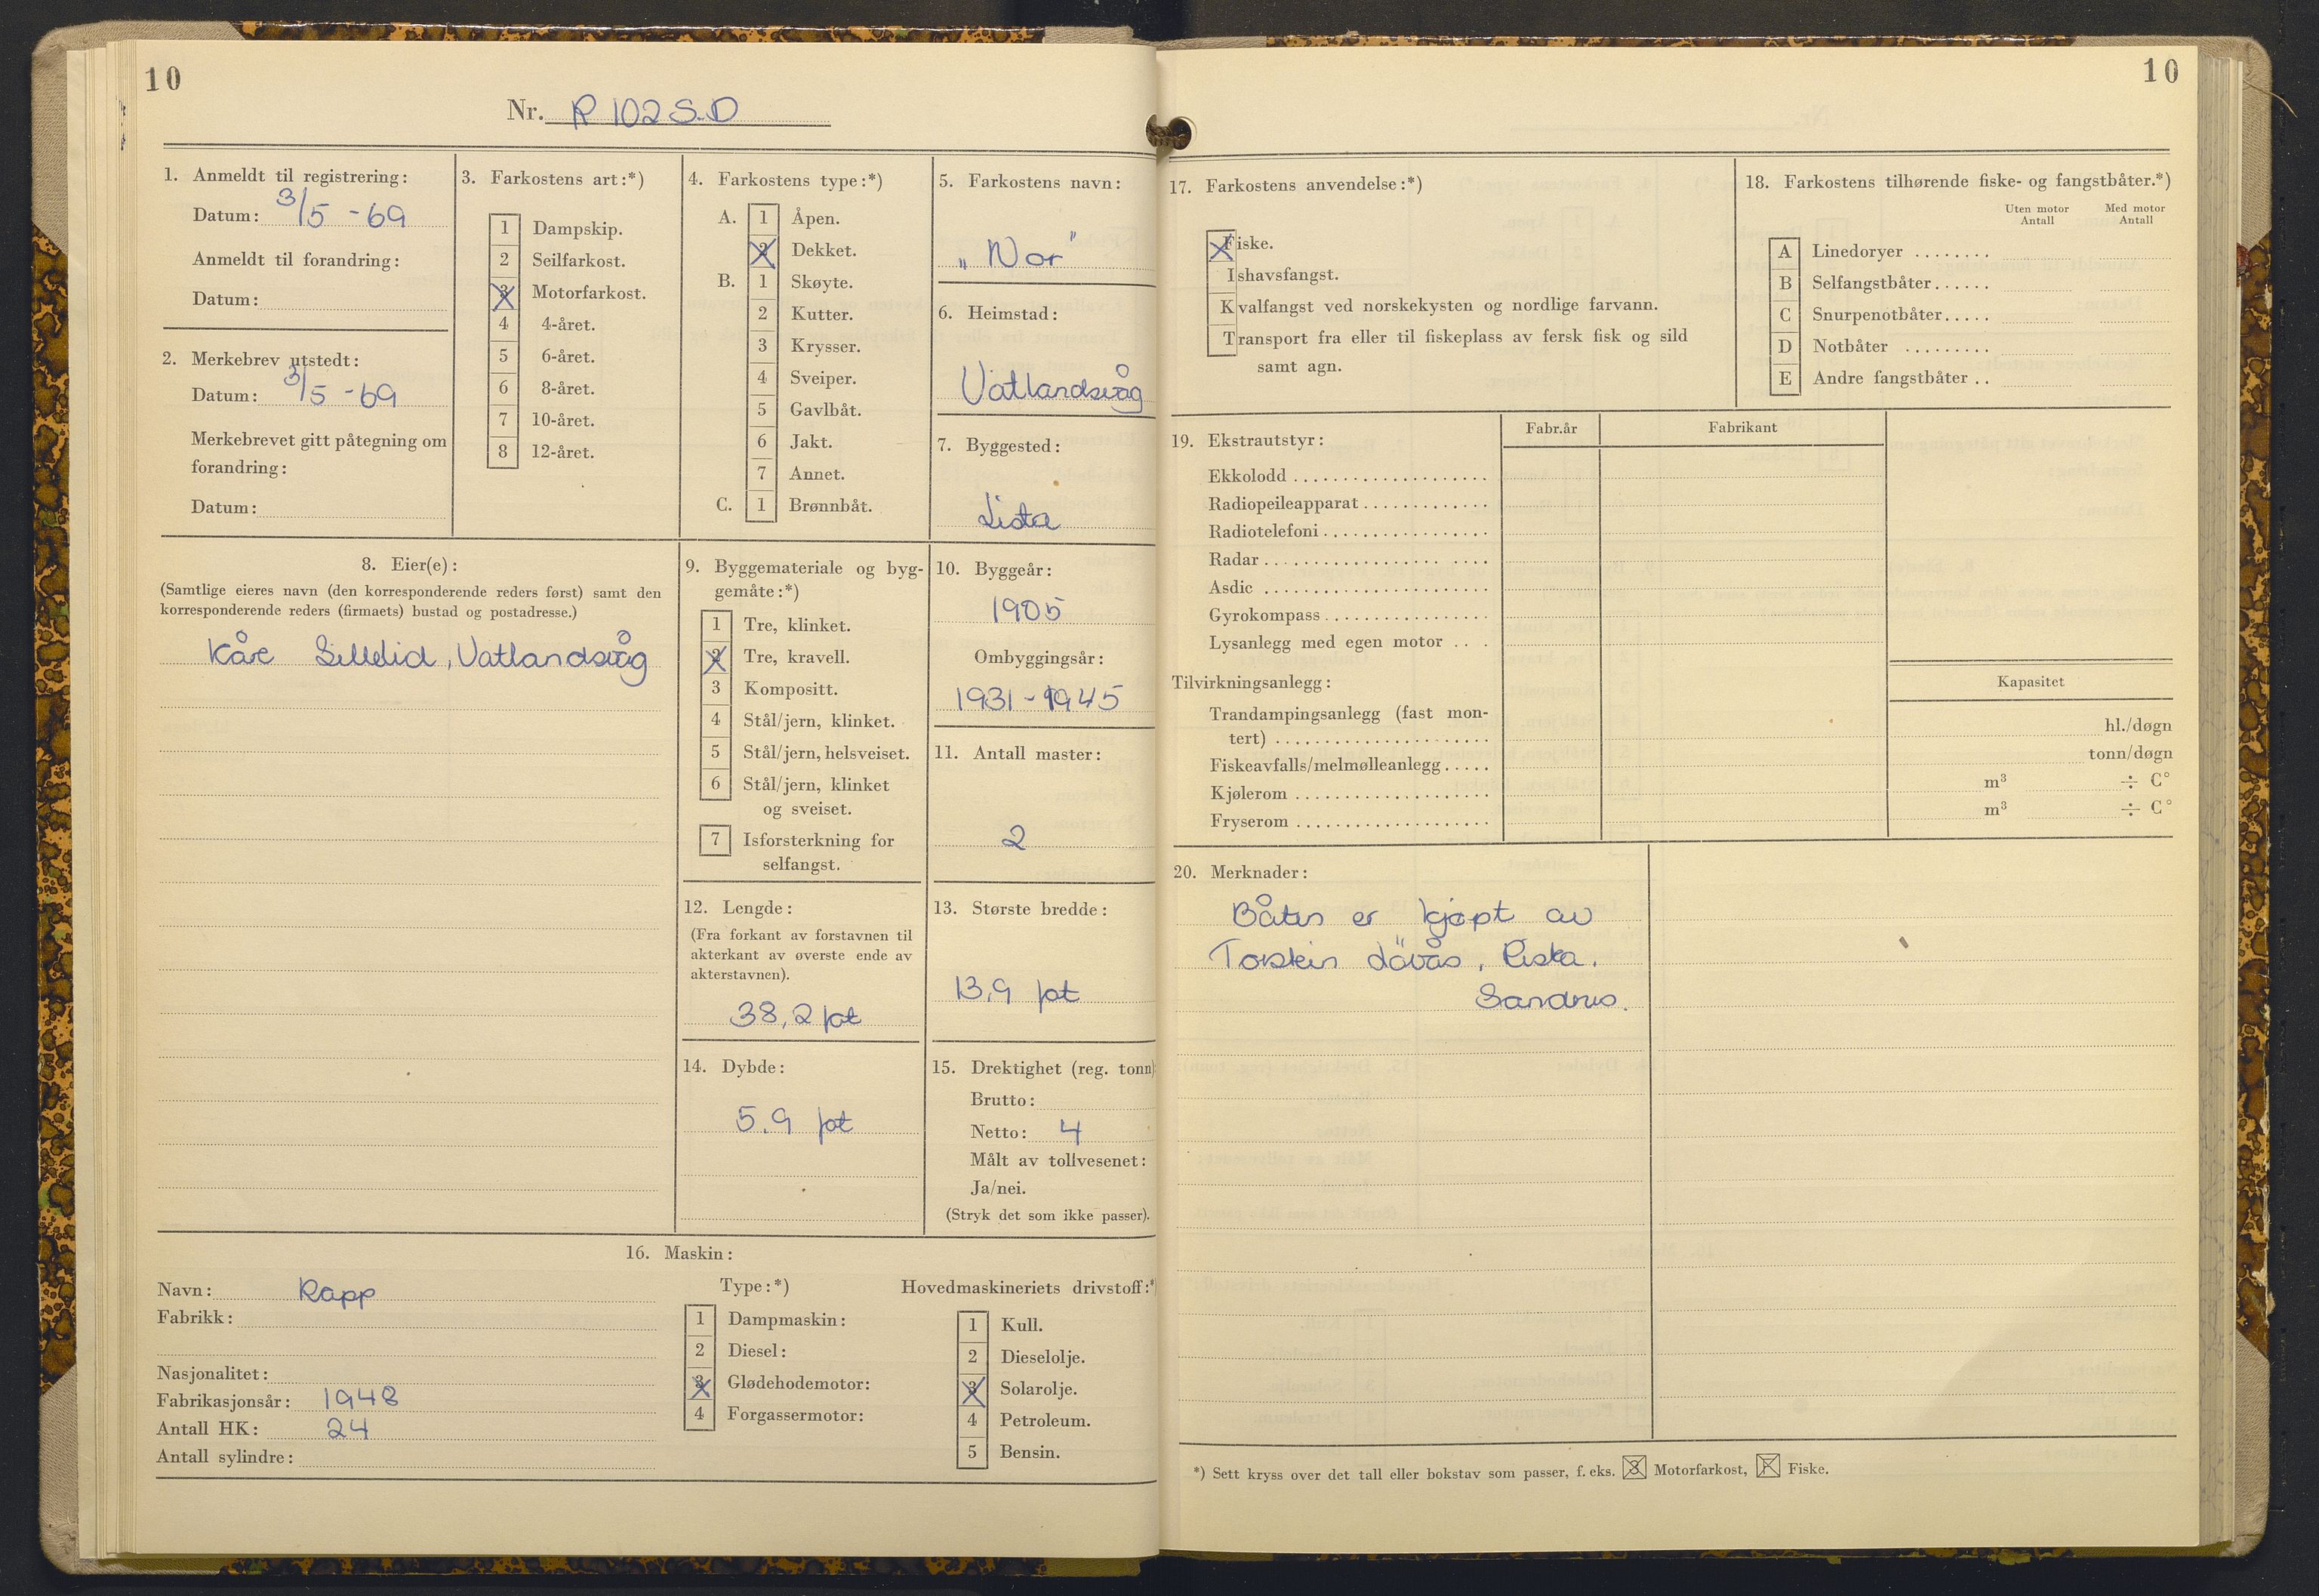 10
Nr. R 102 S.D
1. Anmeldt til registrering:
Datum: 3/5 - 69
Anmeldt til forandring:
Datum:
2. Merkebrev utstedt:
Datum: 3/5 - 69
Merkebrevet gitt påtegning om
forandring:
Datum:
3. Farkostens art:*)
1 Dampskip.
2 Seilfarkost.
3 Motorfarkost.
4 4-året.
5 6-året.
6 8-året.
7 10-året.
8 12-året.
4. Farkostens type:*)
A. 1 Åpen.
2 Dekket.
B. 1 Skøyte.
2 Kutter.
3 Krysser.
4 Sveiper.
5 Gavlbåt.
6 Jakt.
7 Annet.
C. 1 Brønnbåt.
5. Farkostens navn:
„Nor"
6. Heimstad:
Vatlandsvåg
7. Byggested:
Lista
8. Eier(e):
(Samtlige eieres navn (den korresponderende reders først) samt den
korresponderende reders (firmaets) bustad og postadresse.)
Kåre Lillelid, Vatlandsvåg
9. Byggemateriale og byg-
gemåte:*)
1 Tre, klinket.
2 Tre, kravell.
3 Kompositt.
4 Stål/jern, klinket.
5 Stål/jern, helsveiset.
6 Stål/jern, klinket
og sveiset.
7 Isforsterkning for
selfangst.
10. Byggeår:
1905
Ombyggingsår:
1931 - 1945
11. Antall master:
2
12. Lengde:
(Fra forkant av forstavnen til
akterkant av øverste ende av
akterstavnen).
38,2 fot
13. Største bredde:
13,9 fot
14. Dybde:
5.9 fot
15. Drektighet (reg. tonn):
Brutto:
Netto: 4
Målt av tollvesenet:
Ja/nei.
(Stryk det som ikke passer).
16. Maskin:
Navn: Rapp
Fabrikk:
Nasjonalitet:
Fabrikasjonsår: 1948
Antall HK: 24
Antall sylindre:
Type:*)
1 Dampmaskin:
2 Diesel:
3 Glødehodemotor:
4 Forgassermotor:
Hovedmaskineriets drivstoff:*)
1 Kull.
2 Dieselolje.
3 Solarolje.
4 Petroleum.
5 Bensin.
10
17. Farkostens anvendelse:*)
Fiske.
Ishavsfangst.
Kvalfangst ved norskekysten og nordlige farvann.
Transport fra eller til fiskeplass av fersk fisk og sild
samt agn.
18. Farkostens tilhørende fiske- og fangstbåter.*)
Uten motor Antall
Med motor Antall
A Linedoryer
B Selfangstbåter
C Snurpenotbåter
D Notbåter
E Andre fangstbåter
19. Ekstrautstyr:
Fabr.år
Fabrikant
Ekkolodd
Radiopeileapparat
Radiotelefoni
Radar
Asdic
Gyrokompass
Lysanlegg med egen motor
Tilvirkningsanlegg:
Kapasitet
Trandampingsanlegg (fast mon-
tert)
hl./døgn
Fiskeavfalls/melmølleanlegg
tonn/døgn
Kjølerom
m³ ÷ C°
Fryserom
m³ ÷ C°
20. Merknader:
Båten er kjøpt av
Torstein , Riska.
Sandnes.
*) Sett kryss over det tall eller bokstav som passer, f. eks. 3 Motorfarkost, F Fiske.